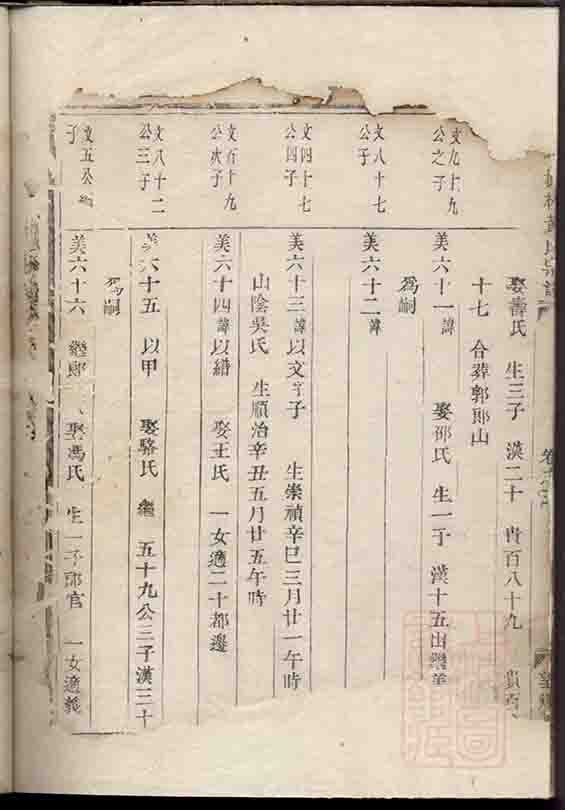 黃氏宗譜
娶壽氏 生三子 漢二十 貴百八十九 貴百
十七 合葬郭郎山
文九十九
公之子
美六十一 諱 娶邵氏 生一子 漢十五出繼美
爲嗣
文八十七
公子
美六十二 諱
文四十七
公四子
美六十三 諱以文 子 生崇禎辛巳三月廿一午時
山陰吳氏 生順治辛丑五月廿五午時
文百十九
公次子
美六十四 諱以縉 娶王氏 一女適二十都邊
文八十二
公三子
美六十五 以甲 娶駱氏 繼 五十九公三子漢三十
爲嗣
文五公繼
子
美六十六 繼郎 娶馮氏 生一子郎官 一女適義